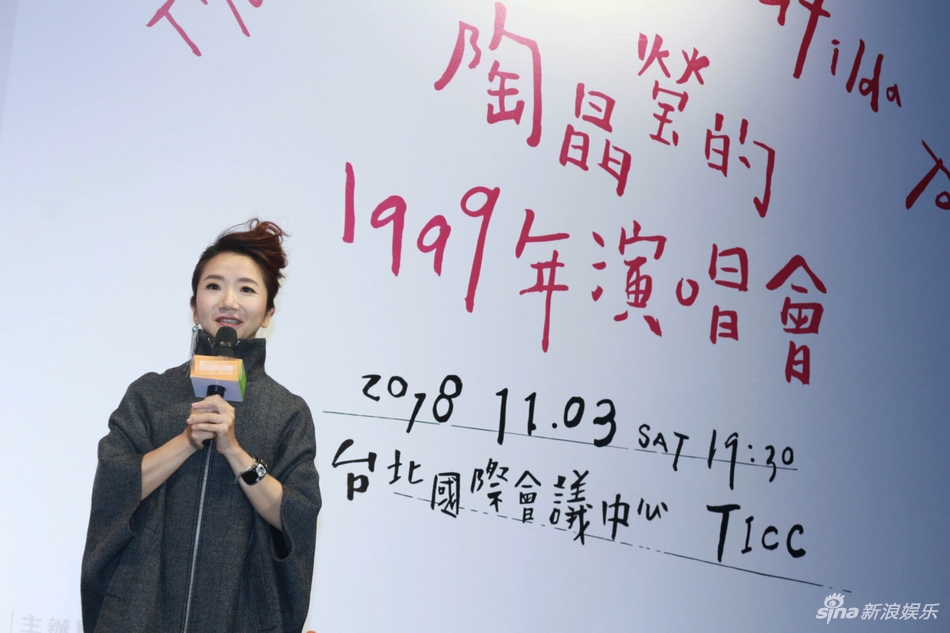 陶晶瑩的
ilda
1999年演唱會
2018 11.03 SAT 19:30
台北國際會議中心 TICC
主辦
sina新浪娱乐